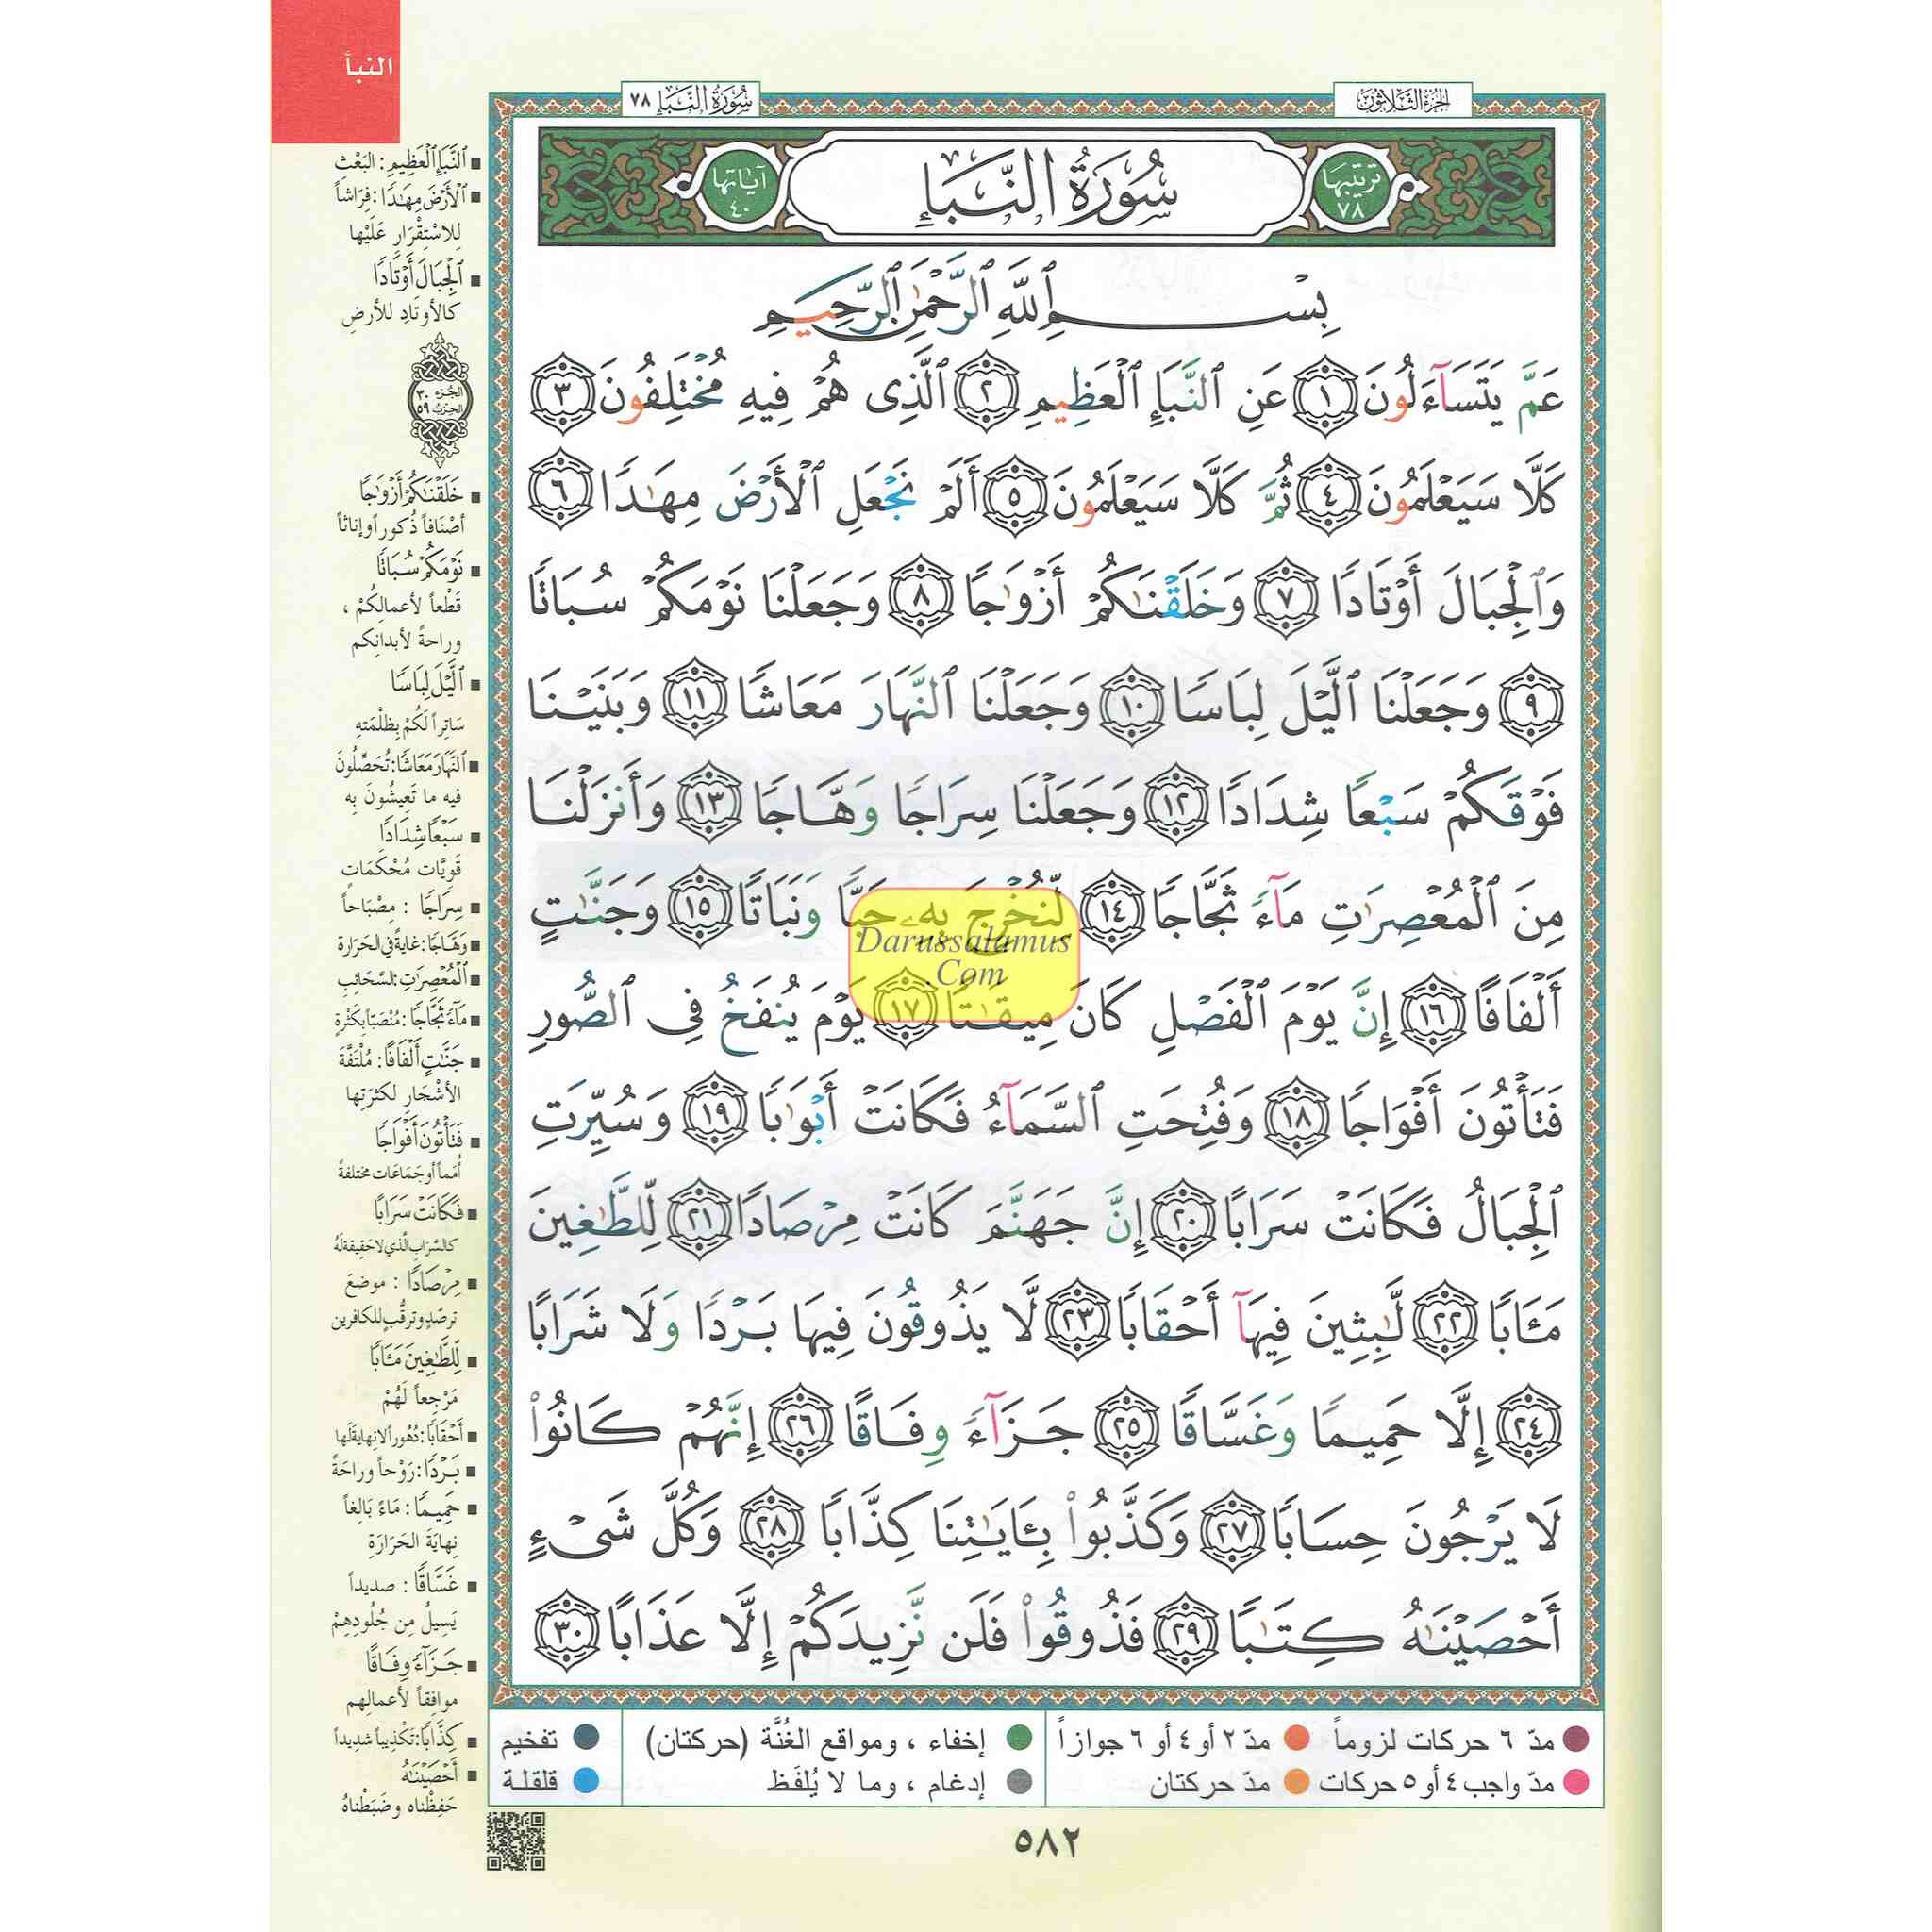 النبأ
الجُزءُ الثَّلاثُونَ
سُورَةُ النَّبَإِ ٧٨
ترتيبها ٧٨
سُورَةُ النَّبَإِ
آياتها ٤٠
بِسْمِ ٱللَّهِ ٱلرَّحْمَٰنِ ٱلرَّحِيمِ
عَمَّ يَتَسَآءَلُونَ ١ عَنِ ٱلنَّبَإِ ٱلْعَظِيمِ ٢ ٱلَّذِى هُمْ فِيهِ مُخْتَلِفُونَ ٣
كَلَّا سَيَعْلَمُونَ ٤ ثُمَّ كَلَّا سَيَعْلَمُونَ ٥ أَلَمْ نَجْعَلِ ٱلْأَرْضَ مِهَٰدًا ٦
وَٱلْجِبَالَ أَوْتَادًا ٧ وَخَلَقْنَٰكُمْ أَزْوَٰجًا ٨ وَجَعَلْنَا نَوْمَكُمْ سُبَاتًا
٩ وَجَعَلْنَا ٱلَّيْلَ لِبَاسًا ١٠ وَجَعَلْنَا ٱلنَّهَارَ مَعَاشًا ١١ وَبَنَيْنَا
فَوْقَكُمْ سَبْعًا شِدَادًا ١٢ وَجَعَلْنَا سِرَاجًا وَهَّاجًا ١٣ وَأَنزَلْنَا
مِنَ ٱلْمُعْصِرَٰتِ مَآءً ثَجَّاجًا ١٤ لِّنُخْرِجَ بِهِۦ حَبًّا وَنَبَاتًا ١٥ وَجَنَّٰتٍ
أَلْفَافًا ١٦ إِنَّ يَوْمَ ٱلْفَصْلِ كَانَ مِيقَٰتًا ١٧ يَوْمَ يُنفَخُ فِى ٱلصُّورِ
فَتَأْتُونَ أَفْوَاجًا ١٨ وَفُتِحَتِ ٱلسَّمَآءُ فَكَانَتْ أَبْوَٰبًا ١٩ وَسُيِّرَتِ
ٱلْجِبَالُ فَكَانَتْ سَرَابًا ٢٠ إِنَّ جَهَنَّمَ كَانَتْ مِرْصَادًا ٢١ لِّلطَّٰغِينَ
مَـَٔابًا ٢٢ لَّٰبِثِينَ فِيهَآ أَحْقَابًا ٢٣ لَّا يَذُوقُونَ فِيهَا بَرْدًا وَلَا شَرَابًا
٢٤ إِلَّا حَمِيمًا وَغَسَّاقًا ٢٥ جَزَآءً وِفَاقًا ٢٦ إِنَّهُمْ كَانُوا۟
لَا يَرْجُونَ حِسَابًا ٢٧ وَكَذَّبُوا۟ بِـَٔايَٰتِنَا كِذَّابًا ٢٨ وَكُلَّ شَىْءٍ
أَحْصَيْنَٰهُ كِتَٰبًا ٢٩ فَذُوقُوا۟ فَلَن نَّزِيدَكُمْ إِلَّا عَذَابًا ٣٠
Darussalamus
.Com
ٱلنَّبَإِ ٱلْعَظِيمِ: البَعْث
ٱلْأَرْضَ مِهَٰدًا: فِرَاشاً
لِلاسْتِقْرَارِ عَلَيْها
ٱلْجِبَالَ أَوْتَادًا
كالأوتَادِ للأرضِ
الجزء ٣٠
الحزب ٥٩
خَلَقْنَٰكُمْ أَزْوَٰجًا
أصْنَافاً ذُكوراً وإناثاً
نَوْمَكُمْ سُبَاتًا
قَطْعاً لأعمالِكُمْ ،
وراحةً لأبدانِكم
ٱلَّيْلَ لِبَاسًا
سَاتِراً لَكُمْ بِظلْمَتِهِ
ٱلنَّهَارَ مَعَاشًا: تُحَصِّلُونَ
فيه ما تَعِيشُونَ بِه
سَبْعًا شِدَادًا
قَوِيَّات مُحْكَمَاتٍ
سِرَاجًا : مِصْبَاحاً
وَهَّاجًا: غايةً في الحَرَارة
ٱلْمُعْصِرَٰتِ: السَّحَائِبِ
مَآءً ثَجَّاجًا: مُنْصَبّاً بِكَثْرةٍ
جَنَّٰتٍ أَلْفَافًا: مُلْتَفَّةَ
الأشْجَارِ لكثرَتِها
فَتَأْتُونَ أَفْوَاجًا
أُمَماً أو جَمَاعَات مختلفةً
فَكَانَتْ سَرَابًا
كالسَّرَابِ الَّذي لا حَقِيقةَ لَهُ
مِرْصَادًا : موضعَ
ترصّدٍ وترقُّبٍ للكافرين
لِّلطَّٰغِينَ مَـَٔابًا
مَرْجِعاً لَهُمْ
أَحْقَابًا: دُهُوراً لا نِهايةَ لَها
بَرْدًا: رَوْحاً وراحَةً
حَمِيمًا: مَاءً بَالِغاً
نِهايَةَ الحَرَارَةِ
غَسَّاقًا : صديداً
يَسِيلُ مِن جُلُودِهِمْ
جَزَآءً وِفَاقًا
موافِقاً لأعمالِهِم
كِذَّابًا: تكْذِيباً شدِيداً
أَحْصَيْنَٰهُ
حَفِظْناه وضَبَطْناهُ
مدّ ٦ حركات لزوماً
مدّ ٢ أو ٤ أو ٦ جوازاً
إخفاء ، ومواقع الغُنَّة (حركتان)
تفخيم
مدّ واجب ٤ أو ٥ حركات
مدّ حركتان
إدغام ، وما لا يُلفَظ
قلقلة
٥٨٢